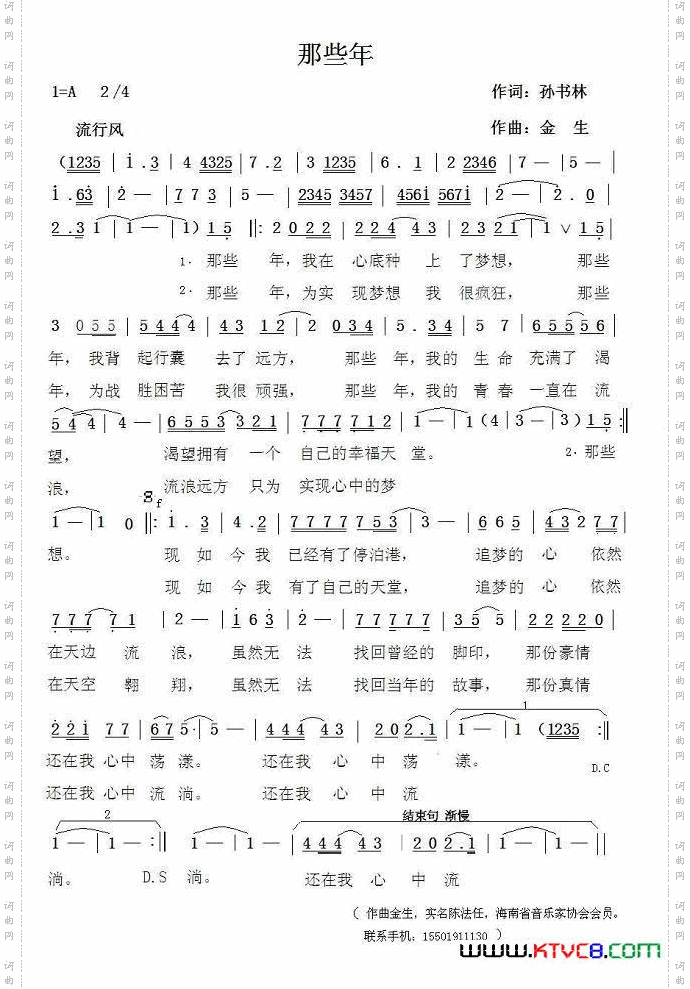 那些年
1=A 2/4 作词：孙书林
流行风 作曲：金 生
（1235 | 1.3 | 4 4325 | 7.2 | 3 1235 | 6.1 | 2 2346 | 7 — | 5 — |
1.63 | 2 — | 7 7 3 | 5 — | 2345 3457 | 4561 5671 | 2 — | 2.0 |
2.31 | 1 — | 1）15 ‖: 2022 | 224 43 | 2321 | 1 ∨ 15 |
1. 那些 年，我在 心底种 上 了梦想， 那些
2. 那些 年，为实 现梦想 我 很疯狂， 那些
3 055 | 5444 | 43 12 | 2 034 | 5.34 | 5 7 | 65556 |
年，我背 起行囊 去了 远方， 那些 年，我的 生 命 充满了 渴
年，为战 胜困苦 我很 顽强， 那些 年，我的 青 春 一直在 流
544 | 4 — | 6553 321 | 777712 | 1 — | 1（4 | 3 — | 3）15 :‖
望， 渴望拥有 一个 自己的幸福天 堂。 2. 那些
浪， 流浪远方 只为 实现心中的梦
f
1 — | 1 0 ‖: 1.3 | 4.2 | 7777 753 | 3 — | 665 | 432 77 |
想。 现 如 今我 已经有了停泊港， 追梦的 心 依然
现 如 今我 有了自己的天堂， 追梦的 心 依然
777 71 | 2 — | 163 | 2 — | 77777 | 355 | 22220 |
在天边 流 浪， 虽然无 法 找回曾经的 脚印， 那份豪情
在天空 翱 翔， 虽然无 法 找回当年的 故事， 那份真情
1
221 77 | 675· | 5 — | 444 43 | 202.1 | 1 — | 1 （1235 :‖
还在我 心中 荡 漾。 还在我 心 中 荡 漾。 D.C
还在我 心中 流 淌。 还在我 心 中 流
2 结束句 渐慢
1 — | 1 — :‖ 1 — | 1 — | 444 43 | 202.1 | 1 — | 1 — ‖
淌。 D.S 淌。 还在我 心 中 流
（ 作曲金生，实名陈法任，海南省音乐家协会会员。
联系手机：15501911130 ）
www.KTVC8.com
词曲网
词曲网
词曲网
词曲网
词曲网
词曲网
词曲网
词曲网